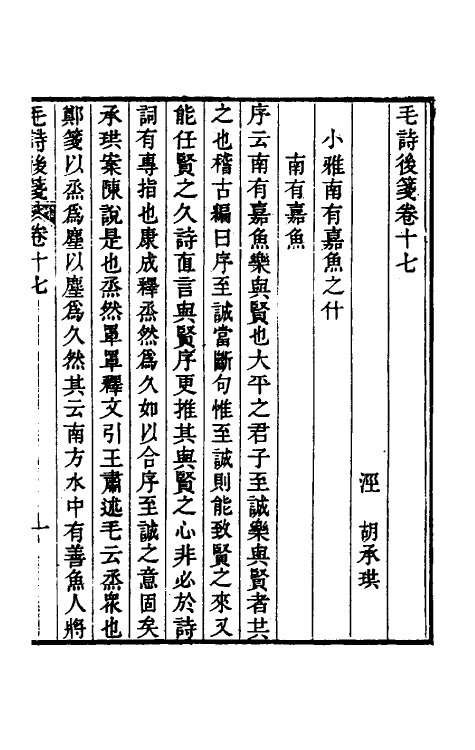 毛詩後箋卷十七
涇　胡承珙
小雅南有嘉魚之什
南有嘉魚
序云南有嘉魚樂與賢也大平之君子至誠樂與賢者共
之也稽古編曰序至誠當斷句惟至誠則能致賢之來又
能任賢之久詩直言與賢序更推其與賢之心非必於詩
詞有專指也康成釋烝然為久如以合序至誠之意固矣
承珙案陳說是也烝然罩罩釋文引王肅述毛云烝衆也
鄭箋以烝為塵以塵為久然其云南方水中有善魚人將
毛詩後箋 卷十七 一